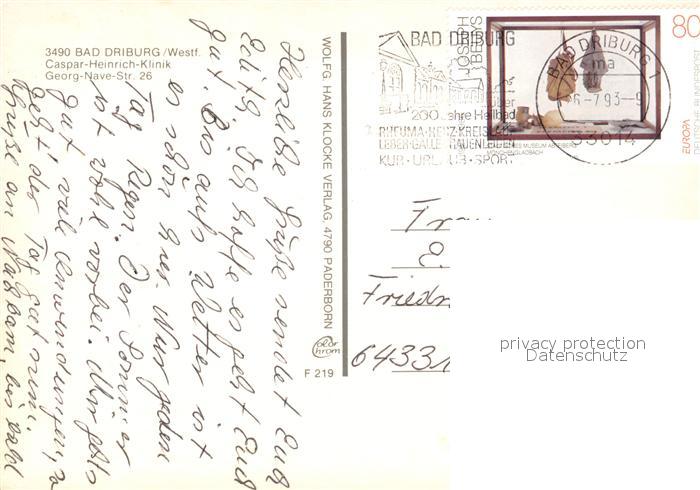 3490 BAD DRIBURG/Westf.
Caspar-Heinrich-Klinik
Georg-Nave-Str. 26
Herzliche Grüße sendet Euch
Edith. Ich hoffe es geht Euch
gut. Bis aufs Wetter ist
es schön hier. Nur jeden
Tag Regen. Der Sommer
ist wohl vorbei. Mir geht's
gut, viel Anwendungen, so
geht der Tag gut rum.
Grüße an Nachbarn, bis bald
WOLFG. HANS KLOCKE VERLAG, 4790 PADERBORN
color
chrom
F 219
BAD DRIBURG
über
200 Jahre Heilbad
RHEUMA·HERZ·KREISLAUF
LEBER·GALLE·FRAUENLEIDEN
KUR·URLAUB·SPORT
JOSEPH
BEUYS
80
DEUTSCHE BUNDESPOST
EUROPA
STÄDTISCHES MUSEUM ABTEIBERG
MÖNCHENGLADBACH
BAD DRIBURG 1
ma
-6.-7.93-9
33014
Frau
E.
Friedr
6433
privacy protection
Datenschutz